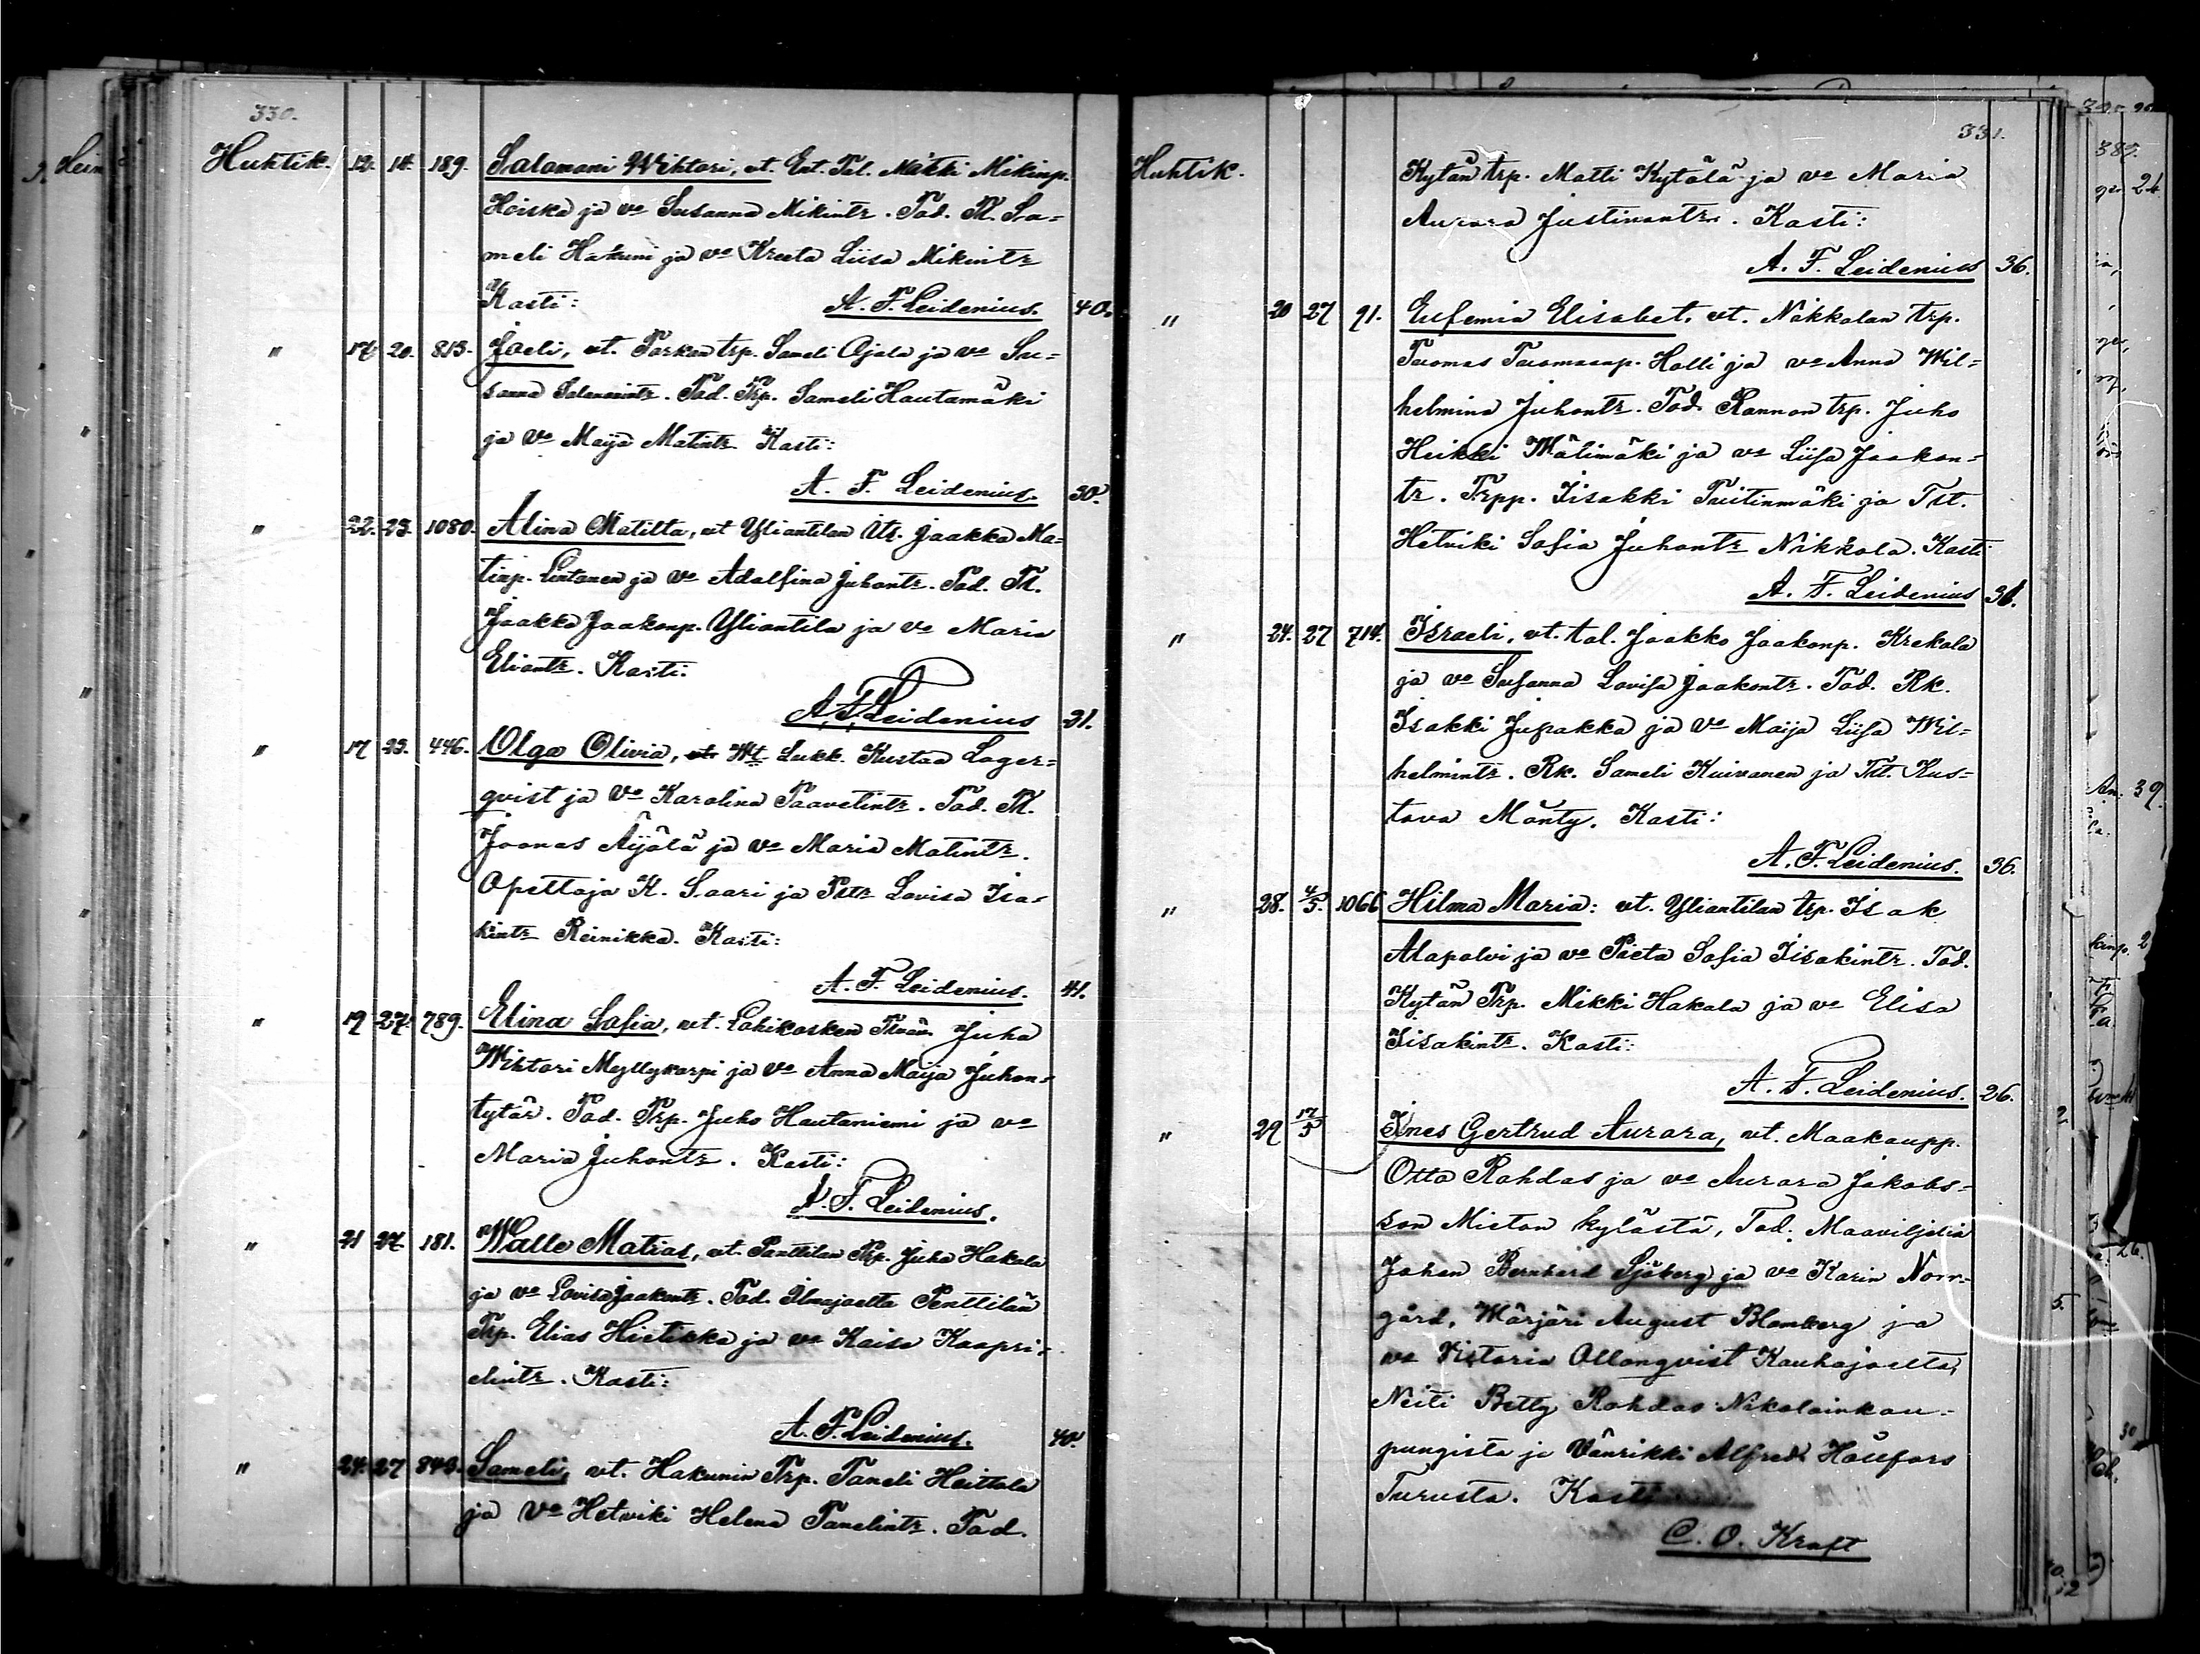 330.
Huhtik. 12. 14. 189. Salomoni Wihtori, vt. Ent. Tal. Mikki Mikinp.
Hoiska ja vo Susanna Mikintr. Tod. Tl. Sa-
meli Hakuni ja vo Kreeta Liisa Mikintr
Kasti: A. F. Leidenius. 40.
" 17 20. 813. Joeli, vt. Torkon trp. Sameli Ojala ja vo Su-
sanna Salomonintr. Tod. Trp. Sameli Hautamäki
ja vo Maija Matintr Kasti:
A. F. Leidenius. 30.
" 22. 23. 1080. Alina Matilta, vt Yliantilan Itr. Jaakko Ma-
tinp. Lintanen ja vo Adolfina Juhontr. Tod. Tl.
Jaakko Jaakonp. Yliantila ja vo Maria
Eliantr. Kasti:
A. F. Leidenius 31.
" 17 23. 446. Olga Olivia, vt Wt. Lukk. Kustaa Lager-
qvist ja vo Karolina Paavelintr. Tod. Tl.
Joonas Äijälä ja vo Maria Matintr.
Opettaja K. Saari ja Pstr Lovisa Isa-
kintr Reinikka. Kasti:
A. F. Leidenius. 41.
" 19 27. 789. Elina Sofia, vt. Lohikosken Juha
Wihtori Myllykarpi ja vo Anna Maija Juhon-
tytär. Tod. Trp. Juho Hautaniemi ja vo
Maria Juhontr. Kasti:
A. F. Leidenius.
" 21 27. 181. Walle Matias, vt. Panttilan Trp. Juha Hakala
ja vo Lovisa Jaakontr. Tod. Ilmajoelta Penttilän
Trp. Elias Hietikka ja vo Kaisa Kaapri-
elintr. Kasti:
A. F. Leidenius. 40.
" 24. 27 843. Sameli, vt. Hakunin Trp. Taneli Heittola
ja vo Hetviki Helena Tanelintr. Tod.
331.
Huhtik. Kytän trp. Matti Kytölä ja vo Maria
Aurora Justinantr. Kasti:
A. F. Leidenius 36.
" 20 27 91. Eufemia Elisabet, vt. Nikkolan trp.
Tuomas Tuomaanp. Holli ja vo Anna Wil-
helmina Juhontr. Tod. Rannon trp. Juho
Heikki Wälimäki ja vo Liisa Jaakon-
tr. Trpp. Iisakki Tuitinmäki ja Tst.
Hetviki Sofia Juhontr Nikkola. Kasti
A. F. Leidenius 31.
" 24. 27 714. Israeli, vt. tal. Jaakko Jaakonp. Krekola
ja vo Susanna Lovisa Jaakontr. Tod. Rk.
Isakki Jupakka ja vo Maija Liisa Wil-
helmintr. Rk. Sameli Kuivanen ja Tst. Kus-
tava Mänty. Kasti:
A. F. Leidenius. 36.
" 28. 4/5. 1066 Hilma Maria: vt. Yliantilan trp. Isak
Alapolvi ja vo Pieta Sofia Iisakintr. Tod.
Kytän Trp. Mikki Hakala ja vo Elisa
Iisakintr. Kasti:
A. F. Leidenius. 26.
" 29 17/5 Ines Gertrud Aurora, vt. Maakaupp.
Otto Rohdas ja vo Aurora Jakobs-
son Mieton kylästä, Tod. Maaviljeliä
Johan Bernhard Sjöberg ja vo Karin Norr-
gård, Wärjäri August Blomberg ja
vo Victoria Ollonqvist Kauhajoelta,
Neiti Betty Rohdas Nikolainkau-
pungista ja Vänrikki Alfred Höufors
Turusta. Kasti
C. O. Kraft